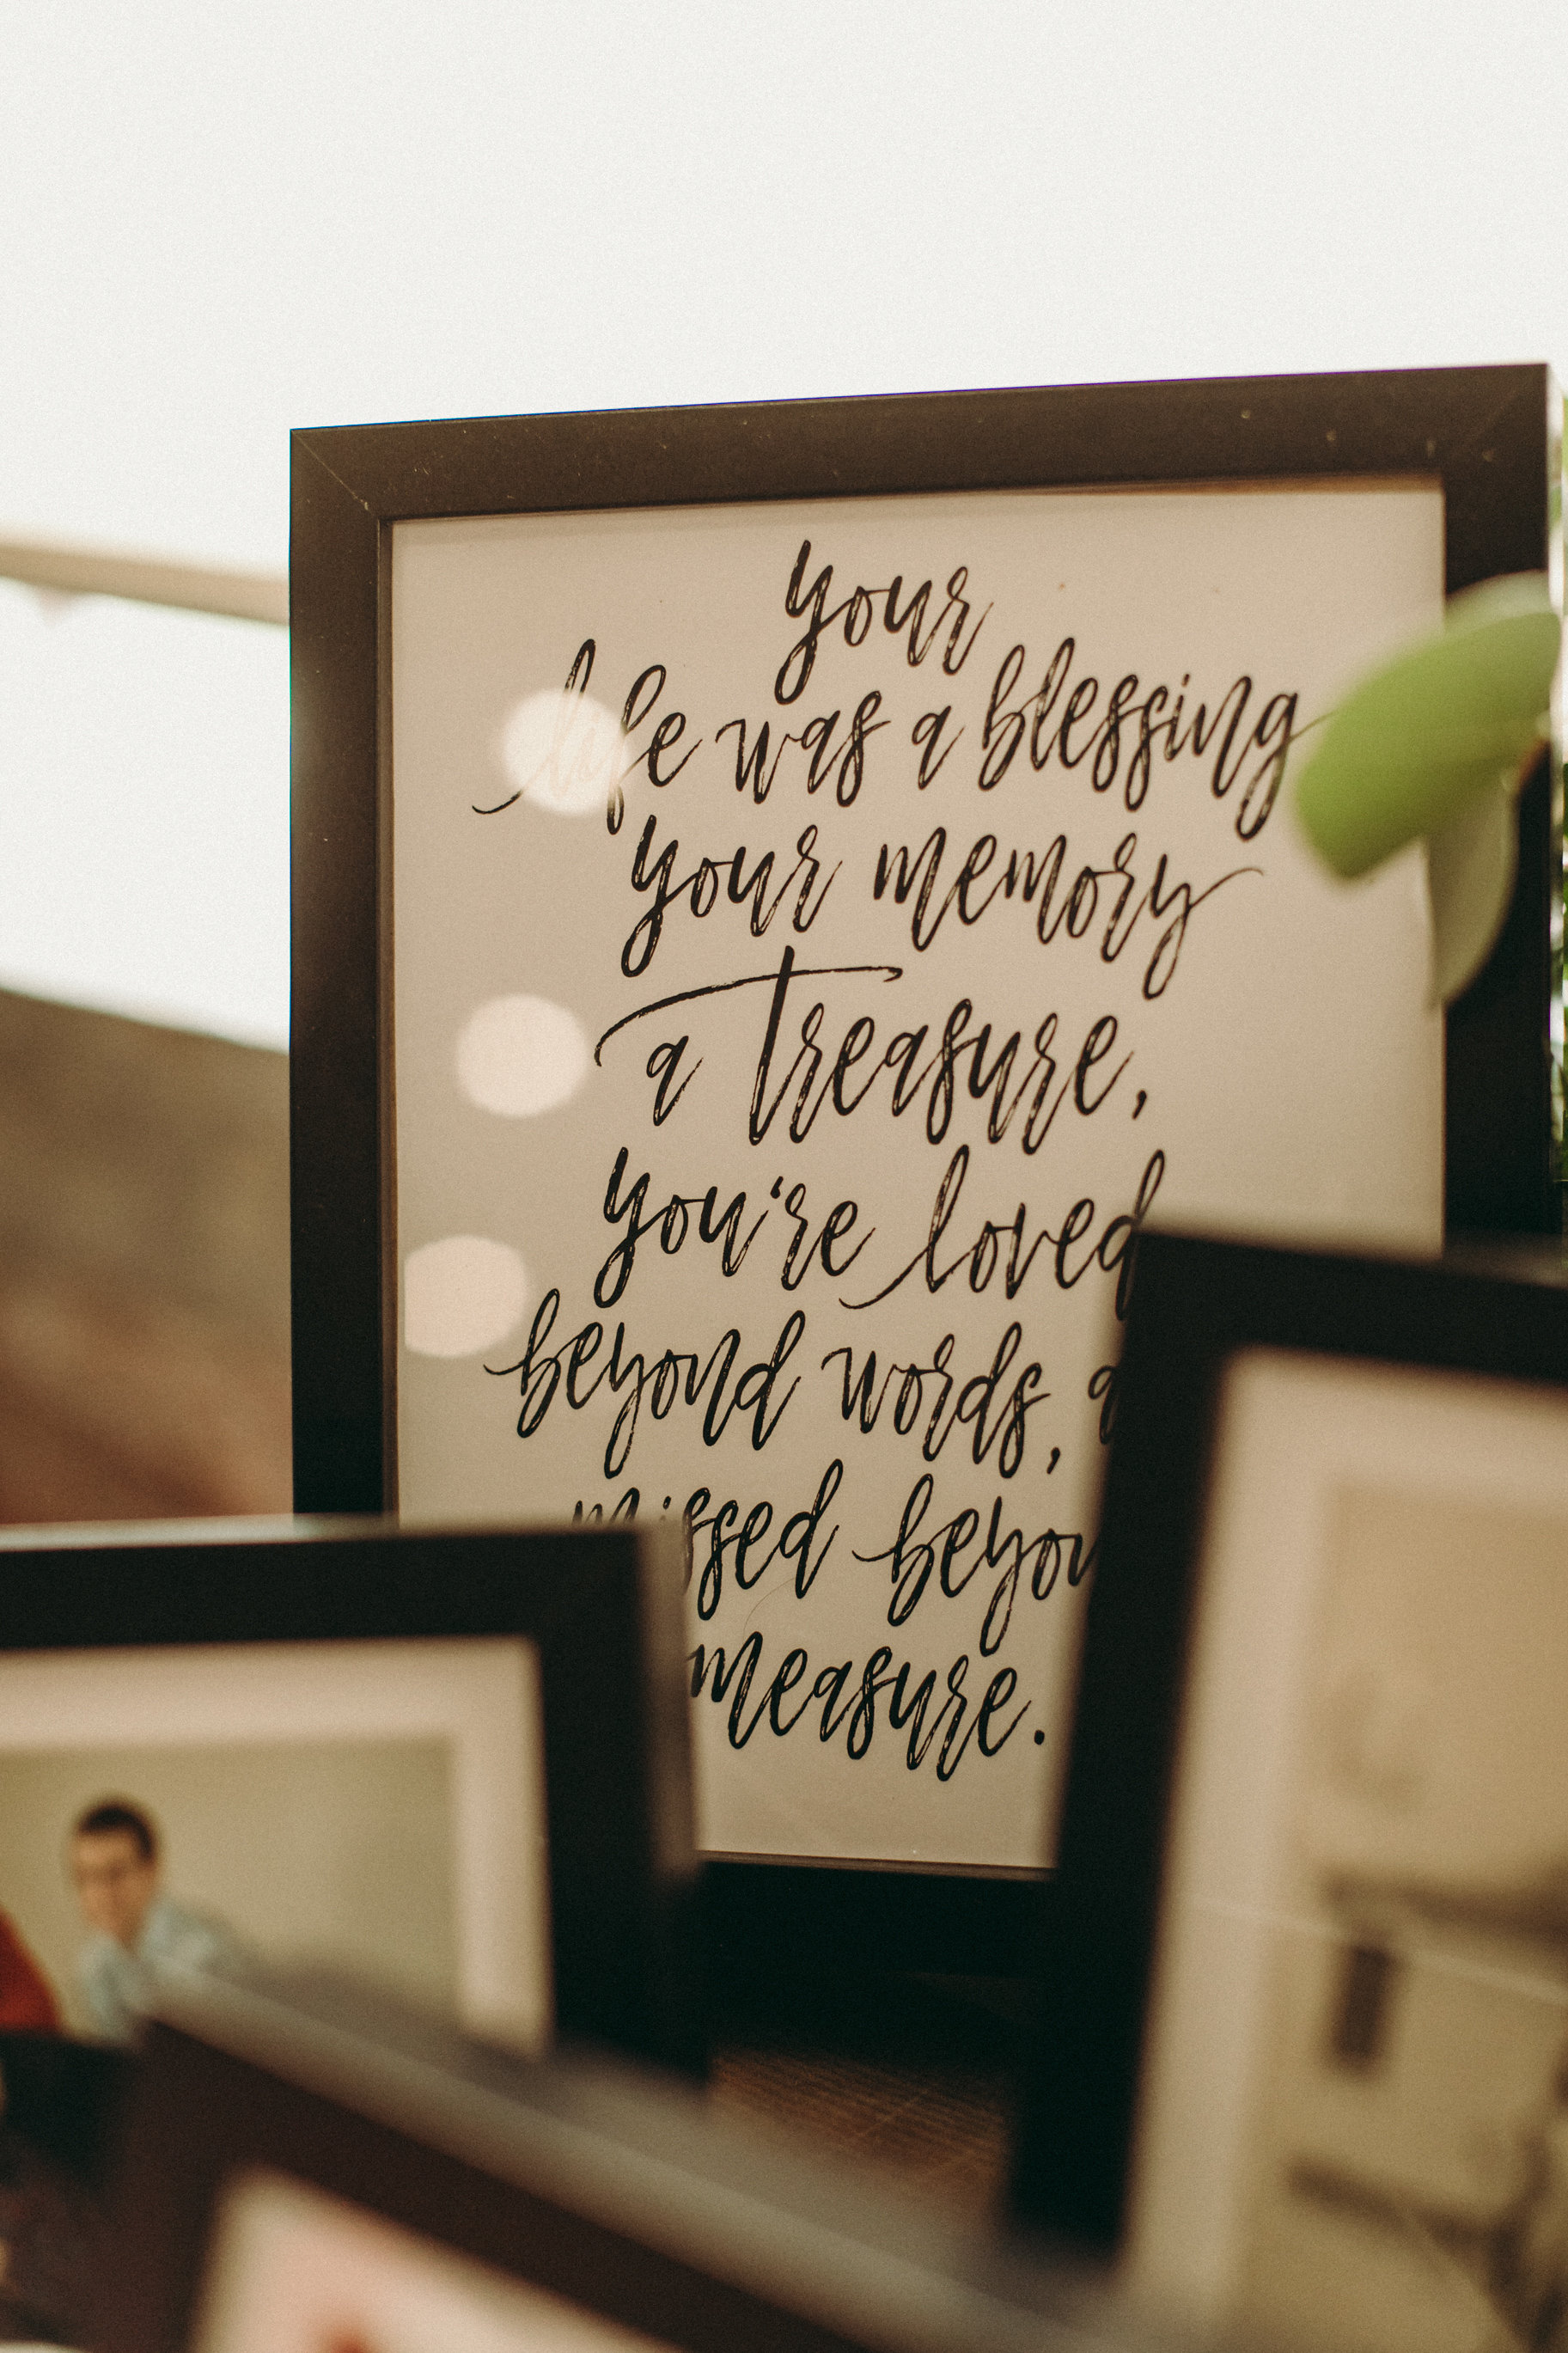 your
life was a blessing
your memory
a treasure,
you're loved
beyond words,
missed
measure.